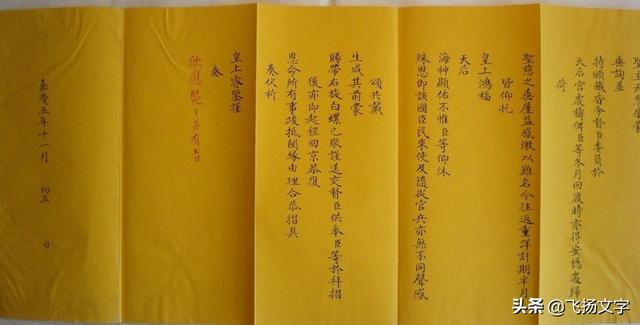 垂詢並
特頒藏香令督臣委員於
天后宮虔禱俾臣等冬月回渡時亦得安穩遄歸
荷
聖慈之垂廑益感激以難名今往返重洋計期半月
皆仰托
皇上鴻福
天后
海神顯佑不惟臣等仰沐
殊恩即該國臣民來使及隨從官兵亦無不同聲感
頌共戴
生成其前蒙
賜帶右旋白螺已敬謹送交督臣供奉臣等於拜摺
後亦即起程回京恭復
恩命所有事竣抵閩緣由理合恭摺具
奏伏祈
皇上睿鑒謹
奏
欣慰覽之另有旨
嘉慶五年十一月 初五 日
头条 @飞扬文字